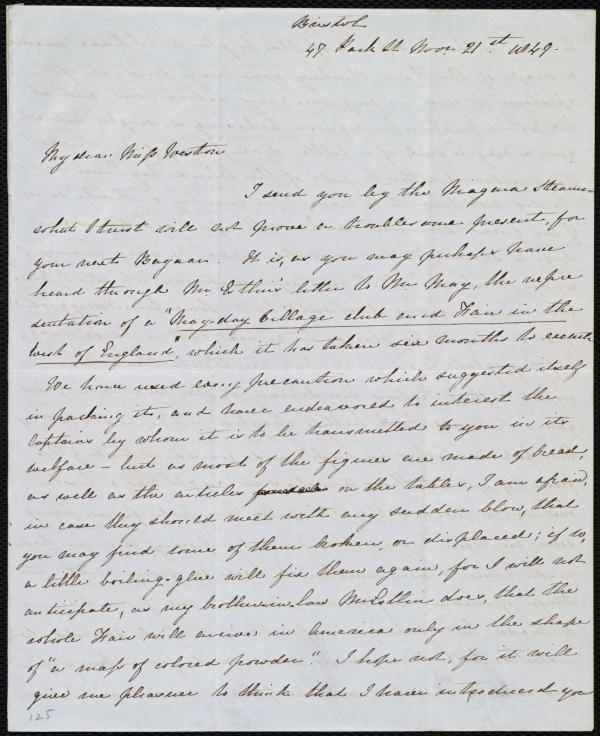 Bristol
47 Park St. Novr. 21st 1849.
My dear Miss Weston
I send you by the Niagara Steamer
what I trust will not prove a troublesome present, for
your next Bazaar. It is, as you may perhaps have
heard through Mr. Estlin's letter to Mr. May, the repre
sentation of a "May-day Village club and Fair in the
West of England", which it has taken six months to execute.
We have used every precaution which suggested itself
in packing it, and have endeavored to interest the
Captains by whom it is to be transmitted to you in its
welfare - but as most of the figures are made of bread,
as well as the articles on the tables, I am afraid,
in case they should meet with any sudden blow, that
you may find some of them broken or displaced; if so,
a little boiling-glue will fix them again, for I will not
anticipate, as my brother-in-law Mr. Estlin does, that the
whole Fair will arrive in America only in the shape
of "a mass of colored powder." I hope not, for it will
give me pleasure to think that I have introduced you
125